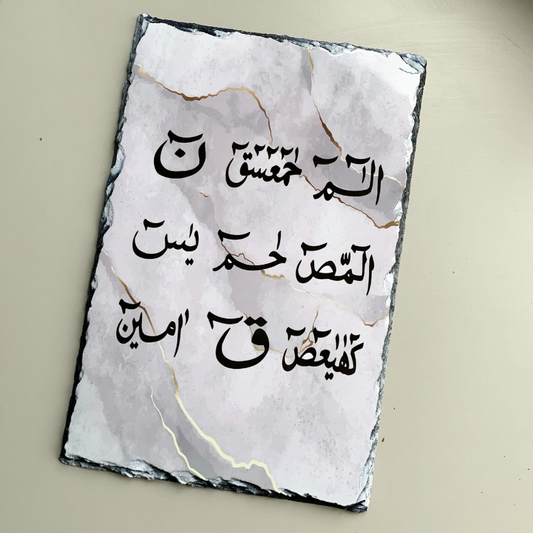 الٓمٓ حٰمٓعٓسٓقٓ نٓ
الٓمّٓصٓ حٰمٓ يٰسٓ
كٓهٰيٰعٓصٓ قٓ اٰمين